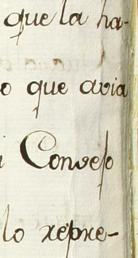 que la ha-
o que avia
i Consejo
lo repre-